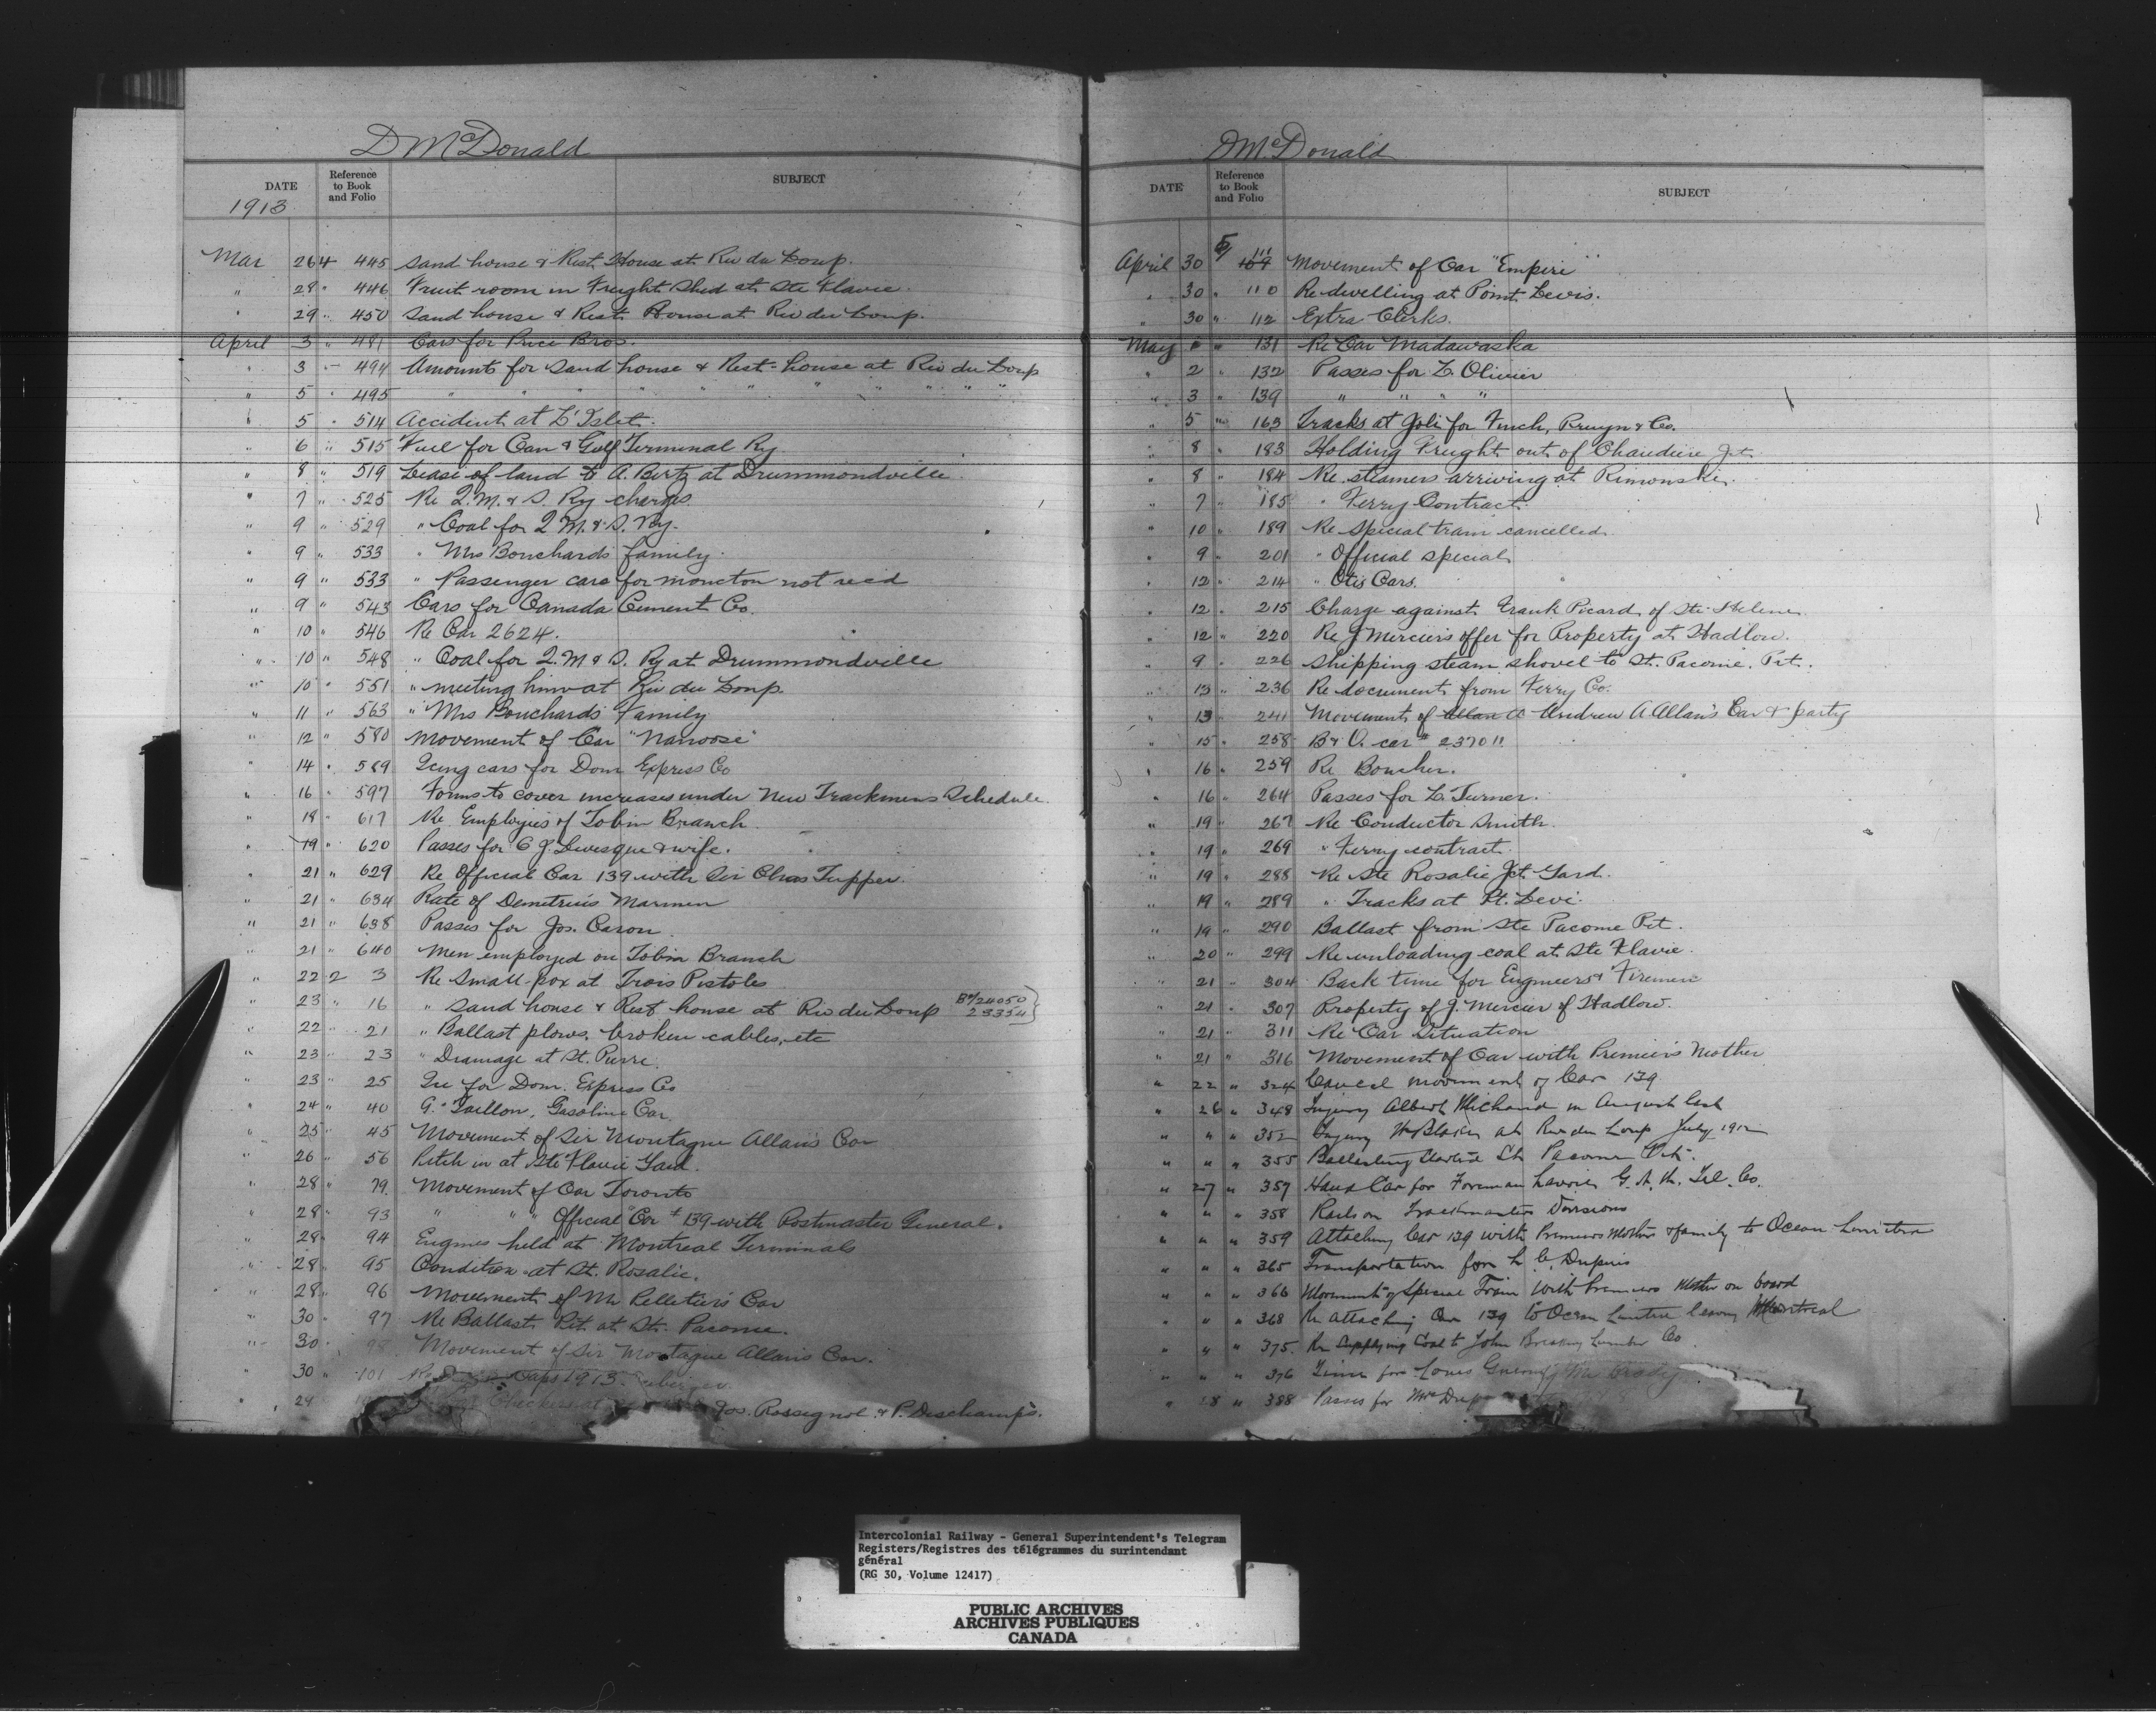 D McDonald
DATE Reference to Book and Folio SUBJECT
1913
Mar 26 4 445 Sand house & Rest House at Riv du Loup.
" 28 " 446 Fruit room in Freight Shed at Ste Flavie.
" 29 " 450 Sand house & Rest House at Riv du Loup.
April 3 " 481 Cars for Price Bros.
" 3 " 494 Amounts for Sand house & Rest-house at Riv du Loup
" 5 " 495 " " " " " " " "
" 5 " 514 Accident at L'Islet.
" 6 " 515 Fuel for Can & Gulf Terminal Ry
" 8 " 519 Lease of land to A. Bertz at Drummondville.
" 7 " 525 Re Q.M. & S. Ry charges.
" 9 " 529 " Coal for Q M. & S. Ry.
" 9 " 533 " Mrs Bouchards family.
" 9 " 533 " Passenger cars for moncton not recd
" 9 " 543 Cars for Canada Cement Co.
" 10 " 546 Re Car 2624.
" 10 " 548 " Coal for Q.M & S. Ry at Drummondville
" 10 " 551 " meeting him at Riv du Loup.
" 11 " 563 " Mrs Bouchards Family
" 12 " 580 Movement of Car "Nanoose"
" 14 " 589 Icing cars for Dom Express Co
" 16 " 597 Forms to cover increases under New Trackmens Schedule.
" 18 " 617 Re Employees of Tobin Branch
" 19 " 620 Passes for C J. Levesque & wife.
" 21 " 629 Re Official Car 139 with Sir Chas Tupper.
" 21 " 634 Rate of Demetrius Marmen
" 21 " 638 Passes for Jos. Caron.
" 21 " 640 Men employed on Tobin Branch
" 22 2 3 Re Small-pox at Trois Pistoles
" 23 " 16 " Sand house & Rest house at Riv du Loup 87/24050 23354}
" 22 " 21 " Ballast plows, broken cables, etc
" 23 " 23 " Drainage at St. Pierre.
" 23 " 25 Ice for Dom. Express Co
" 24 " 40 G. Taillon, Gasoline Car.
" 25 " 45 Movement of Sir Montague Allan's Car
" 26 " 56 Pitch in at Ste Flavie Yard.
" 28 " 79. Movement of Car Toronto
" 28 " 93 " " " Official Car #139 with Postmaster General.
" 28 " 94 Engines held at Montreal Terminals
" 28 " 95 Condition at St. Rosalie.
" 28 " 96 Movements of Mr Pelletier's Car
" 30 " 97 Re Ballast Pit at St. Pacome.
" 30 " 98 Movement of Sir Montague Allan's Car.
" 30 " 101 Re Caps 1913.
" 24 Checkers at Jos. Rossignol & P. Deschamps.
D McDonald
DATE Reference to Book and Folio SUBJECT
April 30 5 109 111 Movement of Car "Empire"
" 30 " 110 Re dwelling at Point Levis.
" 30 " 112 Extra Clerks.
May " " 131 Re Car Madawaska
" 2 " 132 Passes for L. Olivier
" 3 " 139 " " " "
" 5 " 163 Tracks at Joli for Finch, Pruyn & Co.
" 8 " 183 Holding Freight out of Chaudiere Jct
" 8 " 184 Re steamers arriving at Rimouski.
" 7 " 185 " Ferry Contract
" 10 " 189 Re Special train cancelled
" 9 " 201 " Official special
" 12 " 214 " Otis Cars.
" 12 " 215 Charge against Frank Picard of Ste Helene
" 12 " 220 Re J Mercier's offer for Property at Hadlow.
" 9 " 226 Shipping steam shovel to St. Pacome. Pit.
" 13 " 236 Re documents from Ferry Co.
" 13 " 241 Movement of Allan A Andrew A Allan's Car & party
" 15 " 258 B & O. car # 23701.
" 16 " 259 Re Boucher.
" 16 " 264 Passes for L. Turner.
" 19 " 267 Re Conductor Smith.
" 19 " 269 " Ferry contract
" 19 " 288 Re Ste Rosalie Jct. Yard.
" 19 " 289 " Tracks at Pt. Levi.
" 19 " 290 Ballast from Ste Pacome Pit.
" 20 " 299 Re unloading coal at Ste Flavie.
" 21 " 304 Back time for Engineers & Firemen
" 21 " 307 Property of J. Mercier of Hadlow.
" 21 " 311 Re Car Situation
" 21 " 316 Movement of Car with Premier's Mother
" 22 " 324 Cancel movement of Car 139
" 26 " 348 Injury Albert Michaud in August last
" " " 352 Injury at Riv du Loup July 1912
" " " 355 Ballasting St Pacome Pit.
" 27 " 357 Hand Car for Foreman Lavoie G. N. W. Tel. Co.
" " " 358 Rails on Trackmasters Divisions
" " " 359 Attaching Car 139 with Premiers Mother & family to Ocean Limited
" " " 365 Transportation for L. C. Dupuis
" " " 366 Movement of Special Train with Premiers Mother on board
" " " 368 Re attaching Car 139 to Ocean Limited leaving Montreal
" " " 375. Re Supplying Coal to John Breakey Lumber Co
" " " 376 Time for Louis
" 28 " 388 Passes for Mrs
Intercolonial Railway - General Superintendent's Telegram
Registers/Registres des télégrammes du surintendant
général
(RG 30, Volume 12417)
PUBLIC ARCHIVES
ARCHIVES PUBLIQUES
CANADA